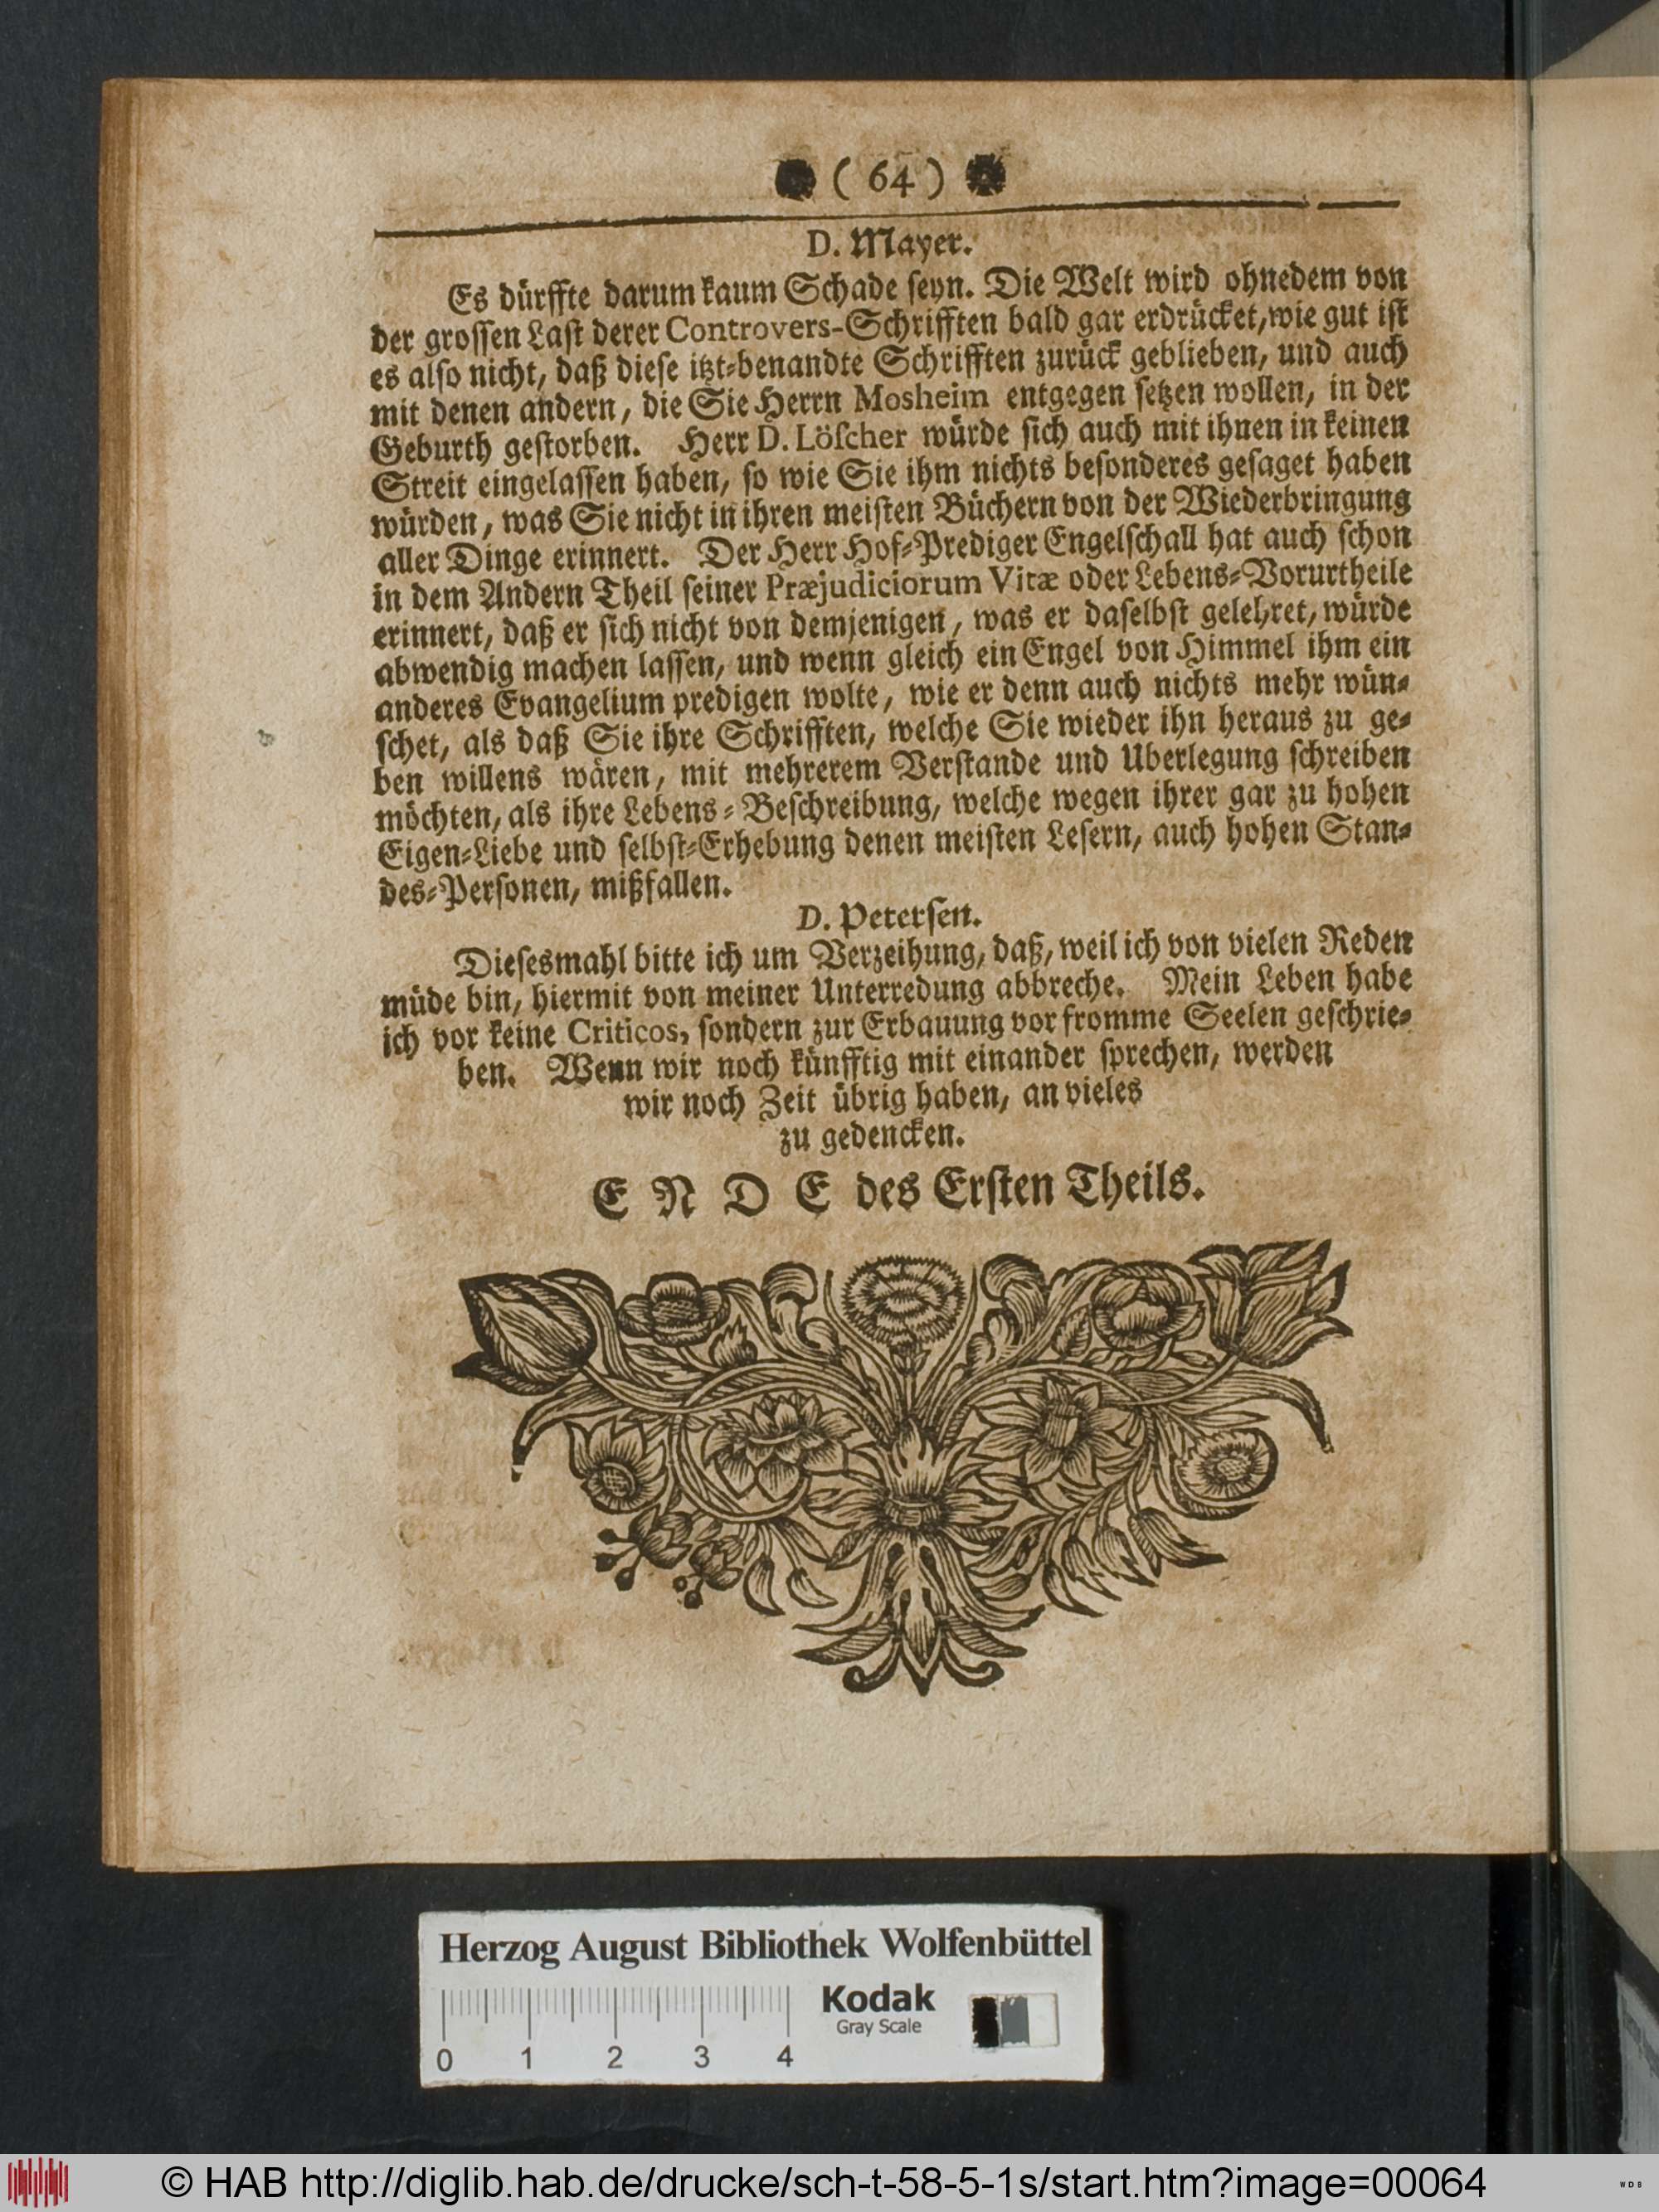 ( 64 )
D. Mayer.
Es dürffte darum kaum Schade seyn. Die Welt wird ohnedem von
der grossen Last derer Controvers-Schrifften bald gar erdrücket, wie gut ist
es also nicht, daß diese itzt-benandte Schrifften zurück geblieben, und auch
mit denen andern, die Sie Herrn Mosheim entgegen setzen wollen, in der
Geburth gestorben. Herr D. Löscher würde sich auch mit ihnen in keinen
Streit eingelassen haben, so wie Sie ihm nichts besonderes gesaget haben
würden, was Sie nicht in ihren meisten Büchern von der Wiederbringung
aller Dinge erinnert. Der Herr Hof-Prediger Engelschall hat auch schon
in dem Andern Theil seiner Præjudiciorum Vitæ oder Lebens-Vorurtheile
erinnert, daß er sich nicht von demjenigen, was er daselbst gelehret, würde
abwendig machen lassen, und wenn gleich ein Engel von Himmel ihm ein
anderes Evangelium predigen wolte, wie er denn auch nichts mehr wün-
schet, als daß Sie ihre Schrifften, welche Sie wieder ihn heraus zu ge-
ben willens wären, mit mehrerem Verstande und Uberlegung schreiben
möchten, als ihre Lebens-Beschreibung, welche wegen ihrer gar zu hohen
Eigen-Liebe und selbst-Erhebung denen meisten Lesern, auch hohen Stan-
des-Personen, mißfallen.
D. Petersen.
Diesesmahl bitte ich um Verzeihung, daß, weil ich von vielen Reden
müde bin, hiermit von meiner Unterredung abbreche. Mein Leben habe
ich vor keine Criticos, sondern zur Erbauung vor fromme Seelen geschrie-
ben. Wenn wir noch künfftig mit einander sprechen, werden
wir noch Zeit übrig haben, an vieles
zu gedencken.
E N D E des Ersten Theils.
Herzog August Bibliothek Wolfenbüttel
Kodak
Gray Scale
0 1 2 3 4
© HAB http://diglib.hab.de/drucke/sch-t-58-5-1s/start.htm?image=00064
WDB